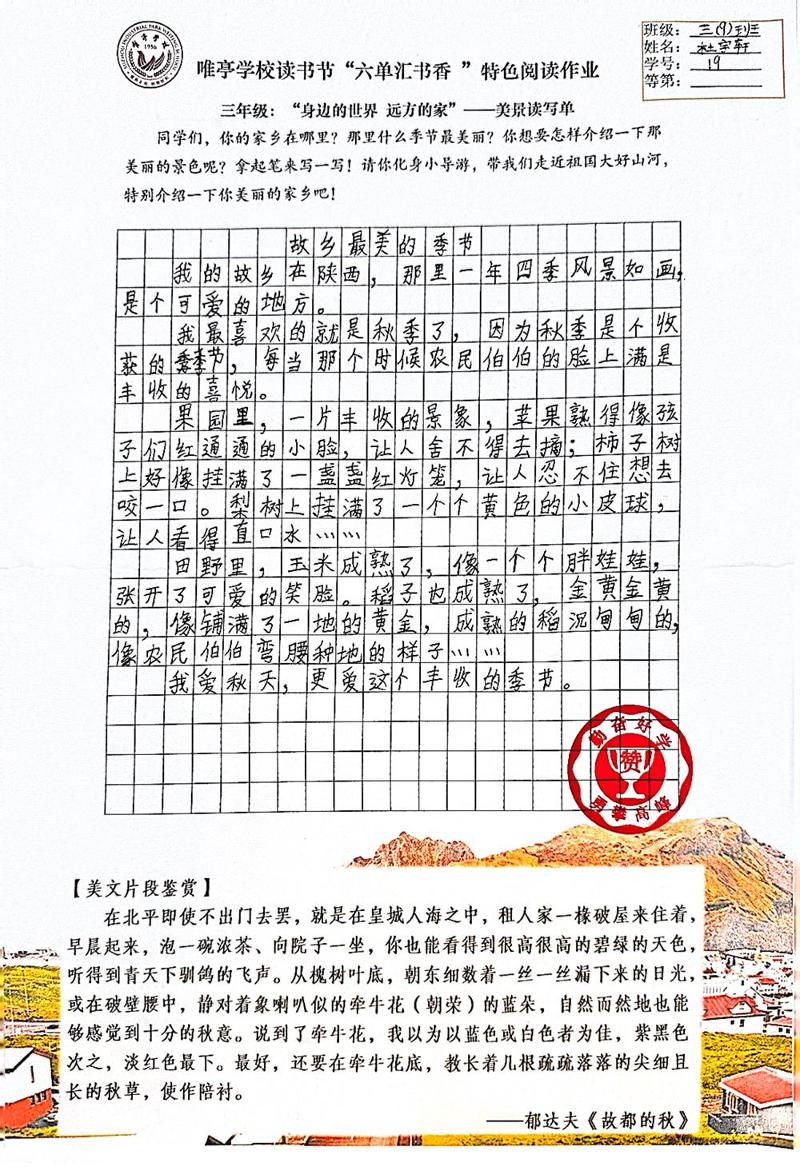 1956
班级：三(9)班
姓名：杜宇轩
学号：19
等第：
唯亭学校读书节“六单汇书香 ”特色阅读作业
三年级：“身边的世界 远方的家”——美景读写单
同学们，你的家乡在哪里？那里什么季节最美丽？你想要怎样介绍一下那
美丽的景色呢？拿起笔来写一写！请你化身小导游，带我们走近祖国大好山河，
特别介绍一下你美丽的家乡吧！
故乡最美的季节
我的故乡在陕西，那里一年四季风景如画，
是个可爱的地方。
我最喜欢的就是秋季了，因为秋季是个收
获的季节，每当那个时候农民伯伯的脸上满是
丰收的喜悦。
果园里，一片丰收的景象，苹果熟得像孩
子们红通通的小脸，让人舍不得去摘；柿子树
上好像挂满了一盏盏红灯笼，让人忍不住想去
咬一口。梨树上挂满了一个个黄色的小皮球，
让人看得直口水……
田野里，玉米成熟了，像一个个胖娃娃，
张开了可爱的笑脸。稻子也成熟了，金黄金黄
的，像铺满了一地的黄金，成熟的稻沉甸甸的，
像农民伯伯弯腰种地的样子……
我爱秋天，更爱这个丰收的季节。
勤奋好学
赞
勇攀高峰
【美文片段鉴赏】
在北平即使不出门去罢，就是在皇城人海之中，租人家一椽破屋来住着，
早晨起来，泡一碗浓茶、向院子一坐，你也能看得到很高很高的碧绿的天色，
听得到青天下驯鸽的飞声。从槐树叶底，朝东细数着一丝一丝漏下来的日光，
或在破壁腰中，静对着象喇叭似的牵牛花（朝荣）的蓝朵，自然而然地也能
够感觉到十分的秋意。说到了牵牛花，我以为以蓝色或白色者为佳，紫黑色
次之，淡红色最下。最好，还要在牵牛花底，教长着几根疏疏落落的尖细且
长的秋草，使作陪衬。
——郁达夫《故都的秋》